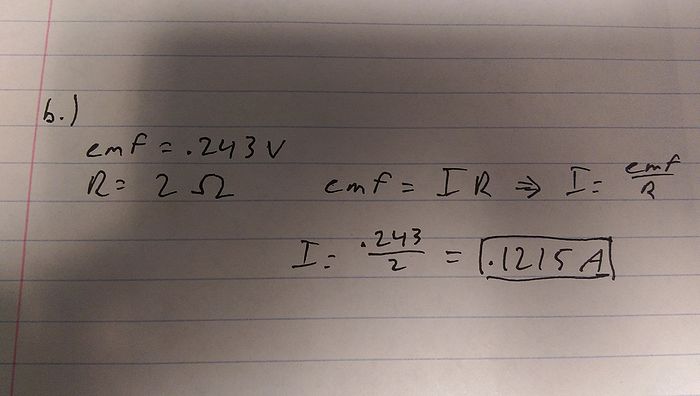 b.)
emf = .243 V
R = 2 Ω emf = I R ⇒ I = emf/R
I = .243/2 = .1215 A